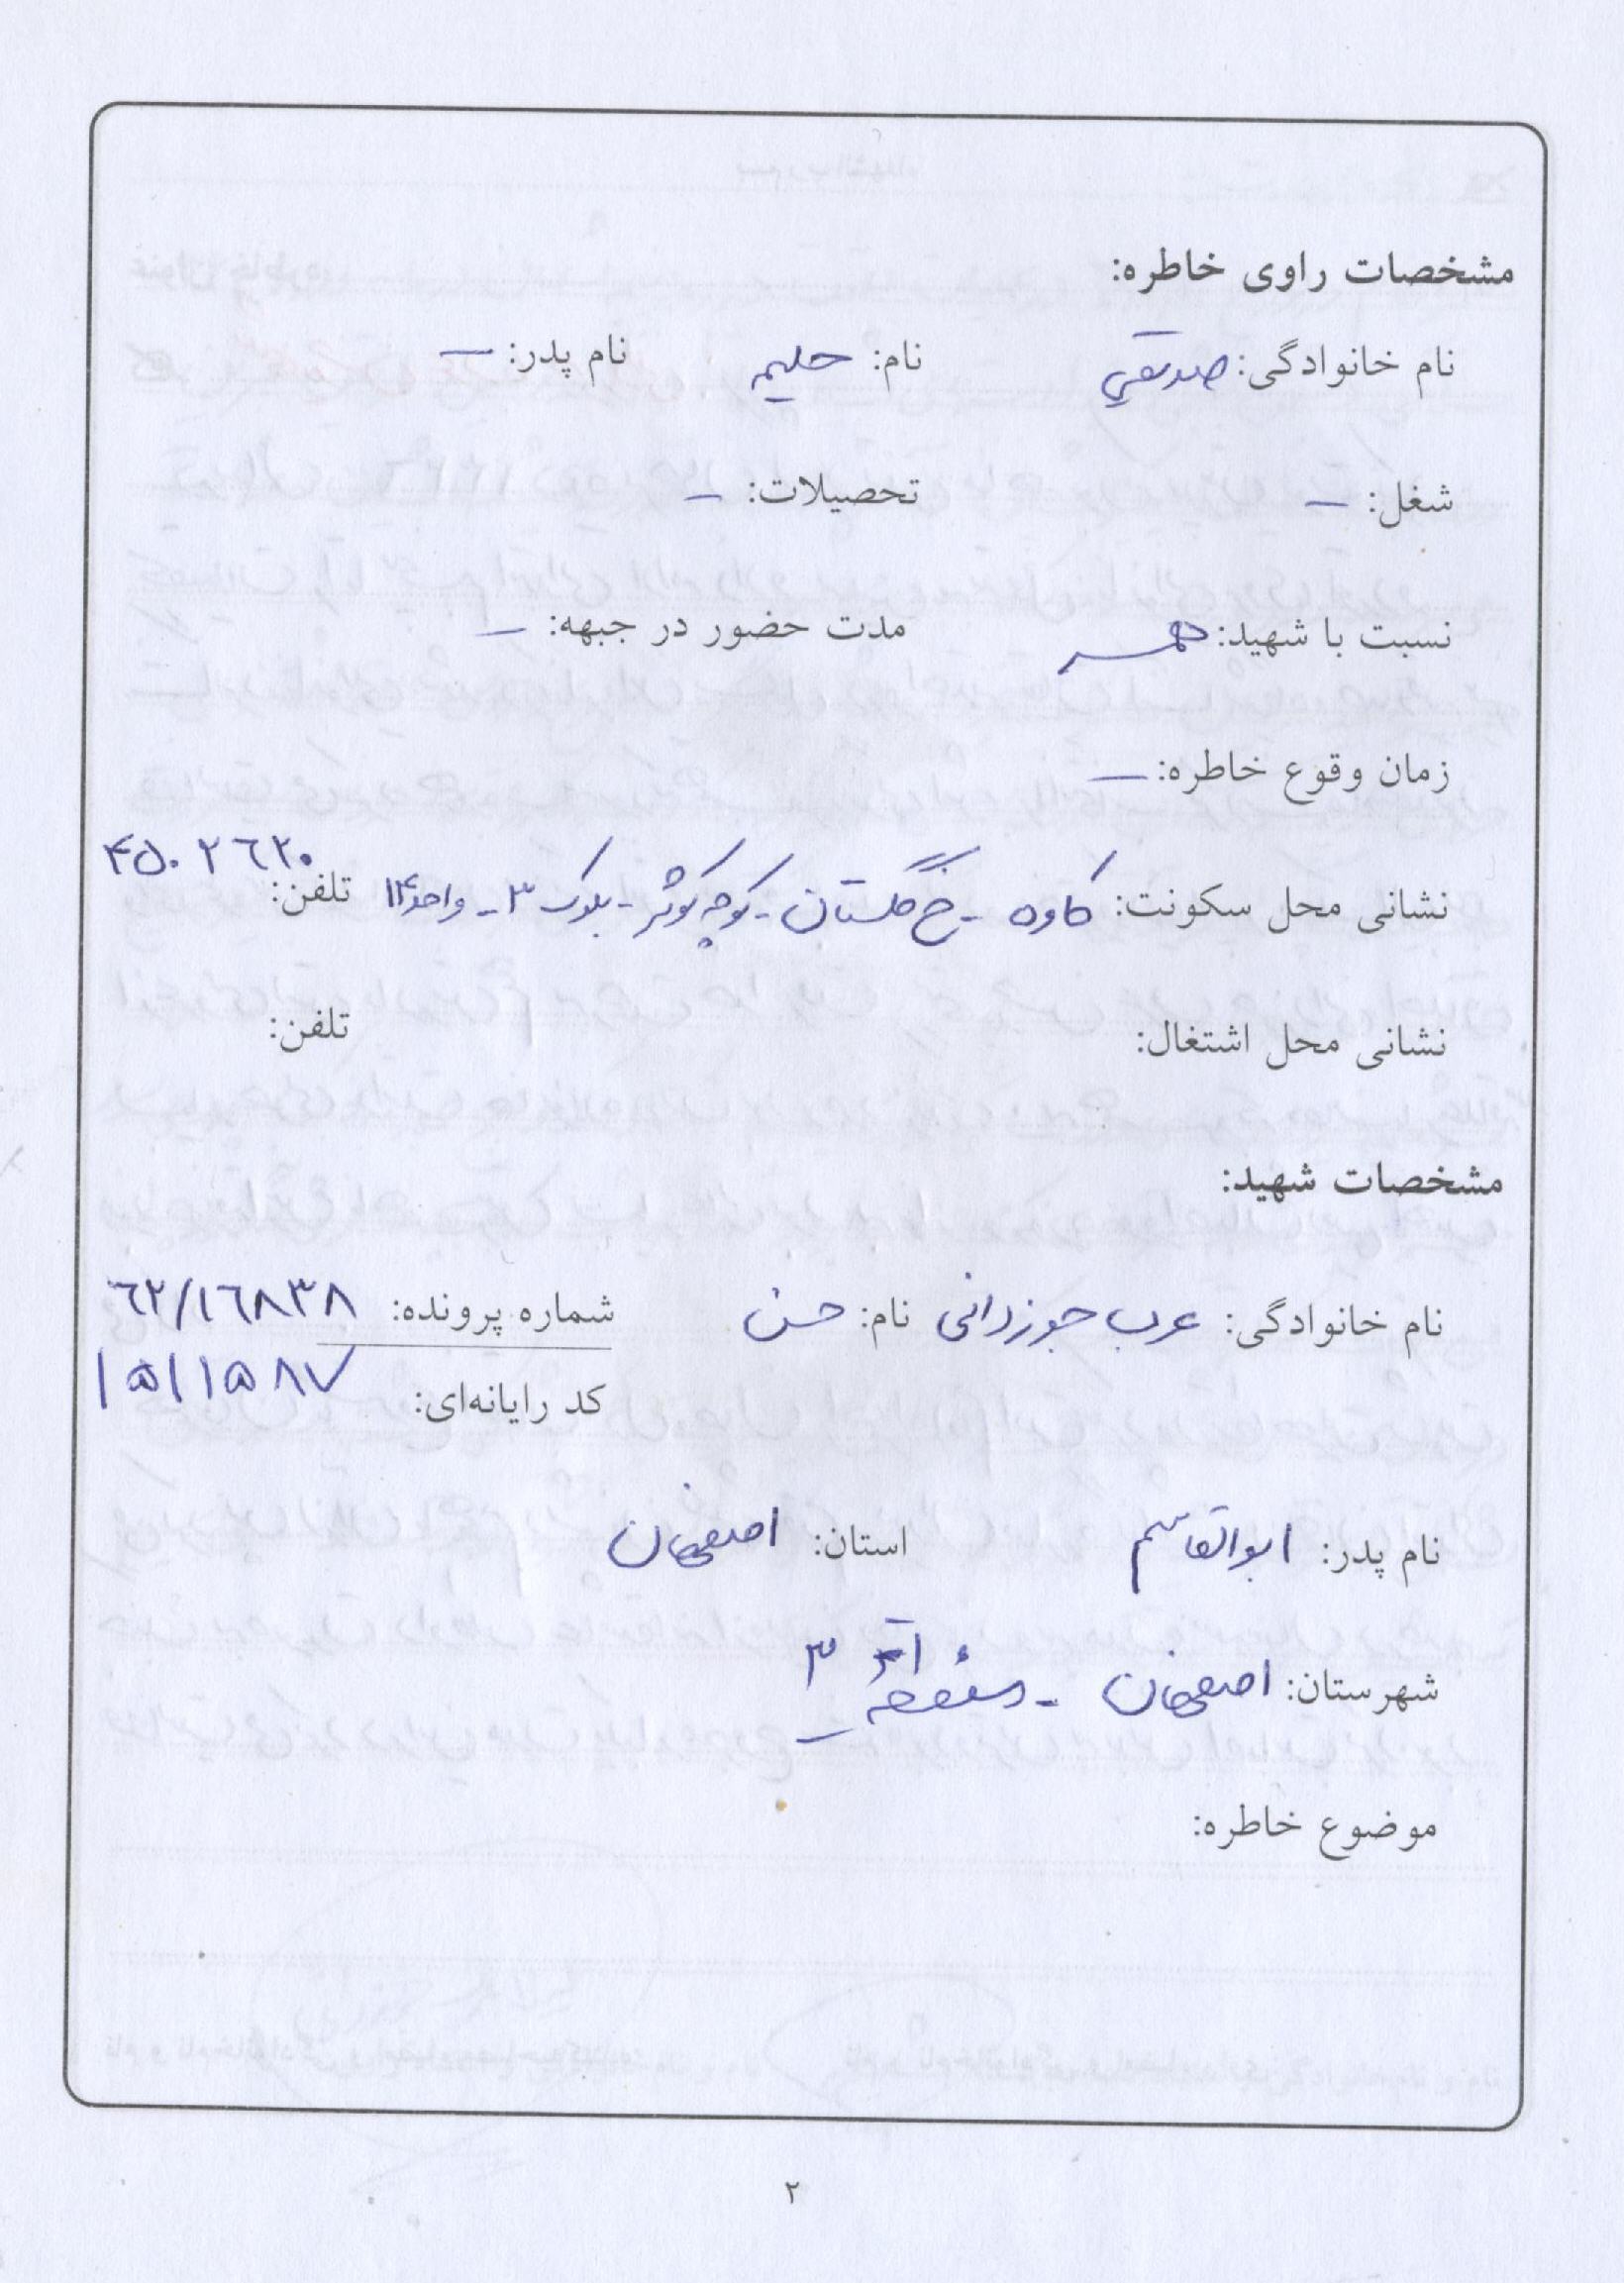 مشخصات راوی خاطره:
نام خانوادگی: صدیقی نام: حلیمه نام پدر: –
شغل: – تحصیلات: –
نسبت با شهید: همسر مدت حضور در جبهه: –
زمان وقوع خاطره: –
نشانی محل سکونت: کاوه - خ گلستان - کوچه کوثر - بلوک ۳ - واحد ۱۴ تلفن: ۴۵۰۲۶۲۰
نشانی محل اشتغال: تلفن:
مشخصات شهید:
نام خانوادگی: عرب جوزدانی نام: حسن شماره پرونده: ۶۲/۱۶۸۳۸
کد رایانه‌ای: ۱۵۱۱۵۸۷
نام پدر: ابوالقاسم استان: اصفهان
شهرستان: اصفهان - منطقه ۳
موضوع خاطره:
۲